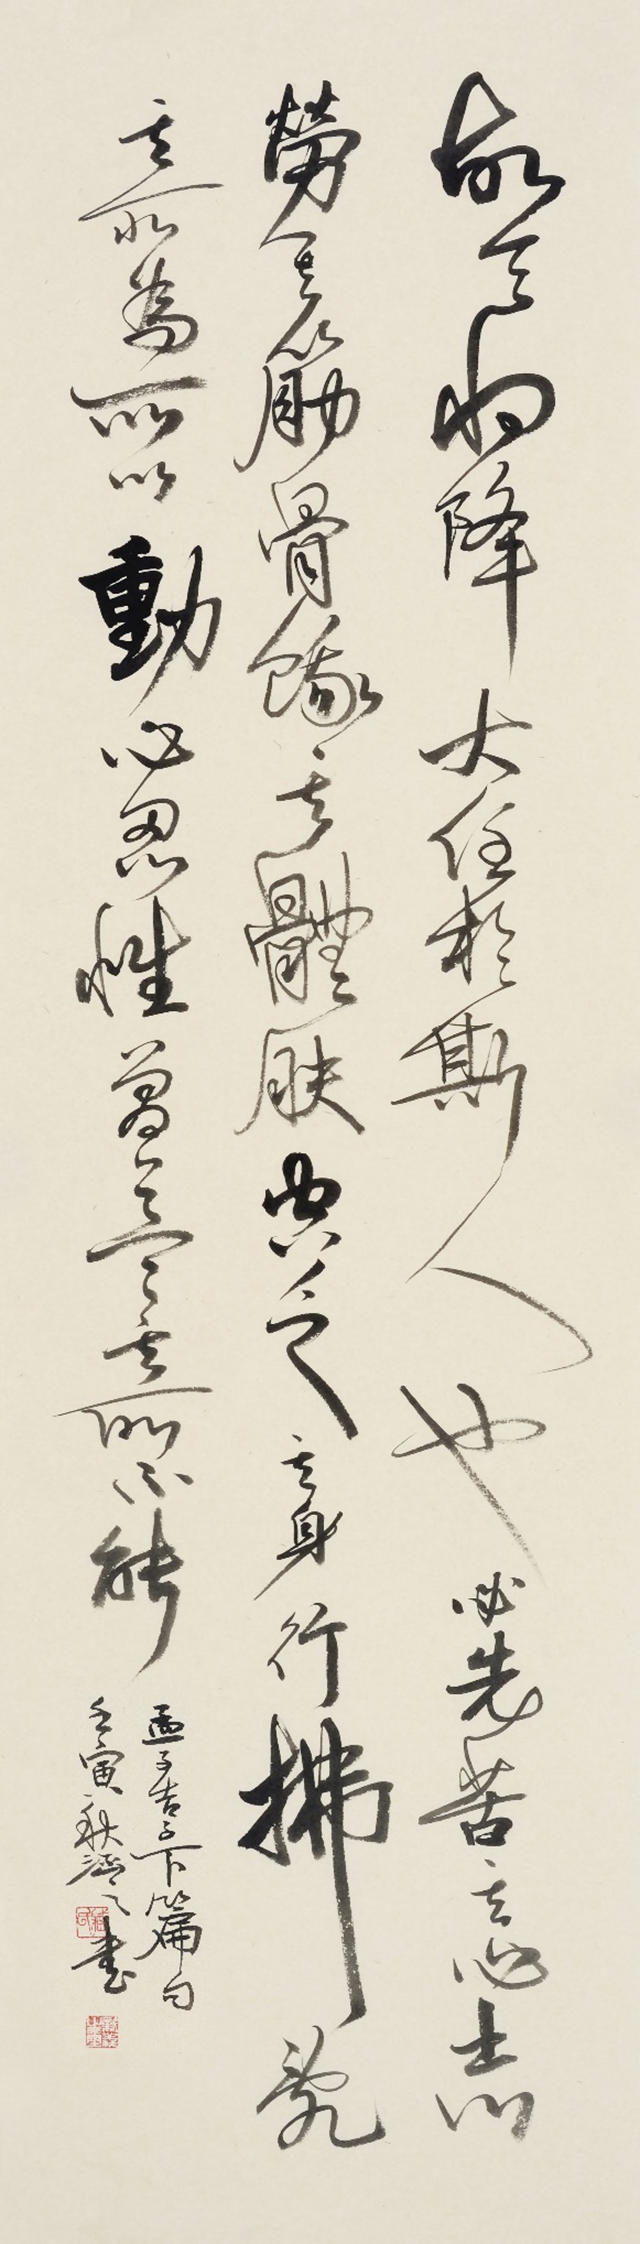 故天将降大任於斯人也必先苦其心志
勞其筋骨餓其體肤空乏其身行拂亂
其所為所以動心忍性曾益其所不能
孟子告子下篇句
壬寅秋 书